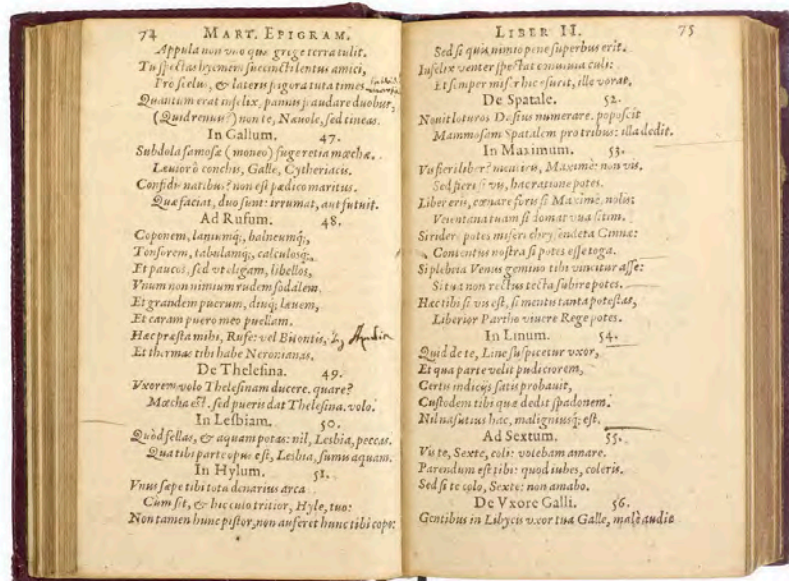 74 MART. EPIGRAM.
Appula non vno quæ grege terra tulit.
Tu spectas hyemem succincti lentus amici,
Pro scelus, & lateris frigora tuta times
Quantum erat infelix, pannis fraudare duobus,
(Quid renuis?) non te, Næuole, sed tineas.
In Gallum. 47.
Subdola famosæ (moneo) fuge retia mœchæ.
Leuior ô conchis, Galle, Cytheriacis.
Confidis natibus? non est pædico maritus.
Quæ faciat, duo sunt: irrumat, aut futuit.
Ad Rufum. 48.
Coponem, laniumq;, balneumq;,
Tonsorem, tabulamq;, calculosq;,
Et paucos, sed vt eligam, libellos,
Vnum non nimium rudem sodalem,
Et grandem puerum, diuq; læuem,
Et caram puero meo puellam.
Hæc præsta mihi, Rufe: vel Bitontis,
Et thermas tibi habe Neronianas.
De Thelesina. 49.
Vxorem volo Thelesinam ducere. quare?
Mœcha est. sed pueris dat Thelesina. volo.
In Lesbiam. 50.
Quòd fellas, & aquam potas: nil, Lesbia, peccas.
Qua tibi parte opus est, Lesbia, sumis aquam.
In Hylum. 51.
Vnus sæpe tibi tota denarius arca
Cum sit, & hic culo tritior, Hyle, tuo:
Non tamen hunc pistor, non auferet hunc tibi copo:
LIBER II. 75
Sed si quis nimio pene superbus erit.
Infelix venter spectat conuiuia culi:
Et semper miser hic esurit, ille vorat.
De Spatale. 52.
Nouit loturos Dasius numerare. poposcit
Mammosam Spatalem pro tribus: illa dedit.
In Maximum. 53.
Vis fieri liber? mentiris, Maximè: non vis.
Sed fieri si vis, hac ratione potes.
Liber eris, cœnare foris si Maximè nolis:
Veientana tuam si domat vua sitim.
Si ridere potes miseri chrysendeta Cinnæ:
Contentus nostra si potes esse toga.
Si plebeia Venus gemino tibi vincitur asse:
Si tu non rectus tecta subire potes.
Hæc tibi si vis est, si mentis tanta potestas,
Liberior Partho viuere Rege potes.
In Linum. 54.
Quid de te, Line suspicetur vxor,
Et qua parte velit pudiciorem,
Certis indicijs satis probauit,
Custodem tibi quæ dedit spadonem.
Nil nasutius hac, maligniusq; est.
Ad Sextum. 55.
Vis te, Sexte, coli: volebam amare.
Parendum est tibi: quod iubes, coleris.
Sed si te colo, Sexte: non amabo.
De Vxore Galli. 56.
Gentibus in Libycis vxor tua Galle, malè audit